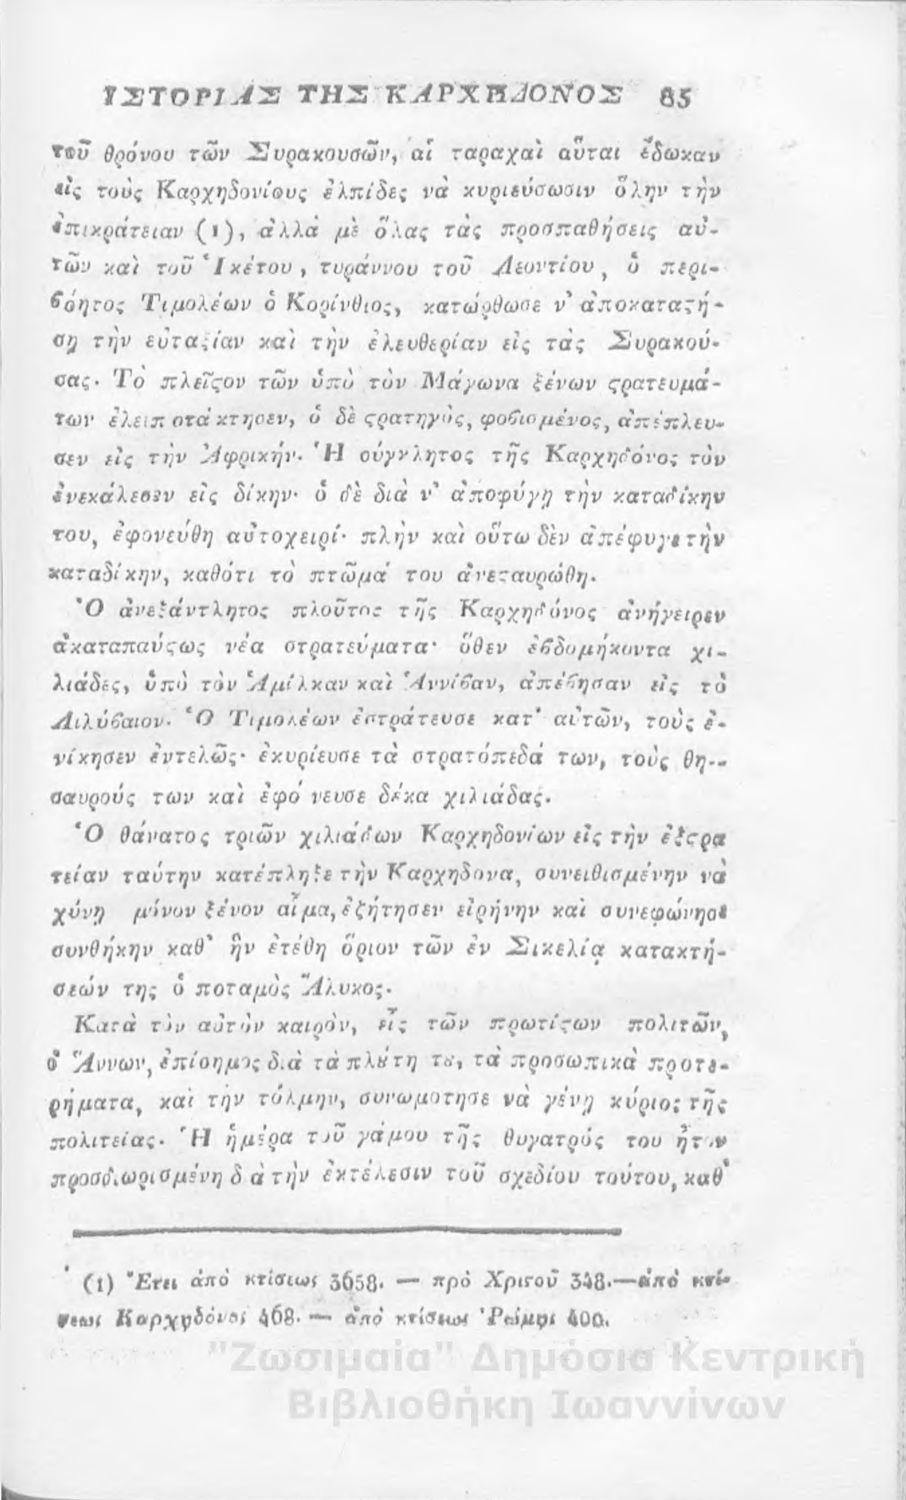 ἹΣΤΟΡΙΑΣ ΤΗΣ ΚΑΡΧΗΔΟΝΟΣ 85
τοῦ θρόνου τῶν Συρακουσῶν, αἱ ταραχαὶ αὗται ἔδωκαν
εἰς τοὺς Καρχηδονίους ἐλπίδες νὰ κυριεύσωσιν ὅλην τὴν
ἐπικράτειαν (1), ἀλλὰ μὲ ὅλας τὰς προσπαθήσεις αὐ-
τῶν καὶ τοῦ Ἱκέτου, τυράννου τοῦ Λεοντίου, ὁ περι-
βόητος Τιμολέων ὁ Κορίνθιος, κατώρθωσε ν' ἀποκαταϛή-
σῃ τὴν εὐταξίαν καὶ τὴν ἐλευθερίαν εἰς τὰς Συρακού-
σας. Τὸ πλεῖϛον τῶν ὑπὸ τὸν Μάγωνα ξένων ϛρατευμά-
των ἐλειποτάκτησεν, ὁ δὲ ϛρατηγὸς, φοβισμένος, ἀπέπλευ-
σεν εἰς τὴν Ἀφρικήν. Ἡ σύγκλητος τῆς Καρχηδόνος τὸν
ἐνεκάλεσεν εἰς δίκην· ὁ δὲ διὰ ν' ἀποφύγῃ τὴν καταδίκην
του, ἐφονεύθη αὐτοχειρί· πλὴν καὶ οὕτω δὲν ἀπέφυγε τὴν
καταδίκην, καθότι τὸ πτῶμά του ἀνεϛαυρώθη.
Ὁ ἀνεξάντλητος πλοῦτος τῆς Καρχηδόνος ἀνήγειρεν
ἀκαταπαύϛως νέα στρατεύματα· ὅθεν ἑβδομήκοντα χι-
λιάδες, ὑπὸ τὸν Ἀμίλκαν καὶ Ἀννίβαν, ἀπέβησαν εἰς τὸ
Λιλύβαιον. Ὁ Τιμολέων ἐστράτευσε κατ' αὐτῶν, τοὺς ἐ-
νίκησεν ἐντελῶς· ἐκυρίευσε τὰ στρατόπεδά των, τοὺς θη-
σαυρούς των καὶ ἐφόνευσε δέκα χιλιάδας.
Ὁ θάνατος τριῶν χιλιάδων Καρχηδονίων εἰς τὴν ἐξϛρα
τείαν ταύτην κατέπληξε τὴν Καρχηδόνα, συνειθισμένην νὰ
χύνῃ μόνον ξένον αἷμα, ἐζήτησεν εἰρήνην καὶ συνεφώνησε
συνθήκην καθ' ἣν ἐτέθη ὅριον τῶν ἐν Σικελίᾳ κατακτή-
σεών της ὁ ποταμὸς Ἄλυκος.
Κατὰ τὸν αὐτὸν καιρὸν, εἷς τῶν πρωτίϛων πολιτῶν,
ὁ Ἄννων, ἐπίσημος διὰ τὰ πλȣ́τη τȣ, τὰ προσωπικὰ προτε-
ρήματα, καὶ τὴν τόλμην, συνωμοτησε νὰ γένῃ κύριος τῆς
πολιτείας. Ἡ ἡμέρα τοῦ γάμου τῆς θυγατρός του ἦτον
προσδιωρισμένη διὰ τὴν ἐκτέλεσιν τοῦ σχεδίου τούτου, καθ'
(1) Ἔτει ἀπὸ κτίσεως 3658. — πρὸ Χριϛοῦ 348.—ἀπὸ κτί-
σεως Καρχηδόνος 468. — ἀπὸ κτίσεως Ῥώμης 400.
"Ζωσιμαία" Δημόσια Κεντρική
Βιβλιοθήκη Ιωαννίνων